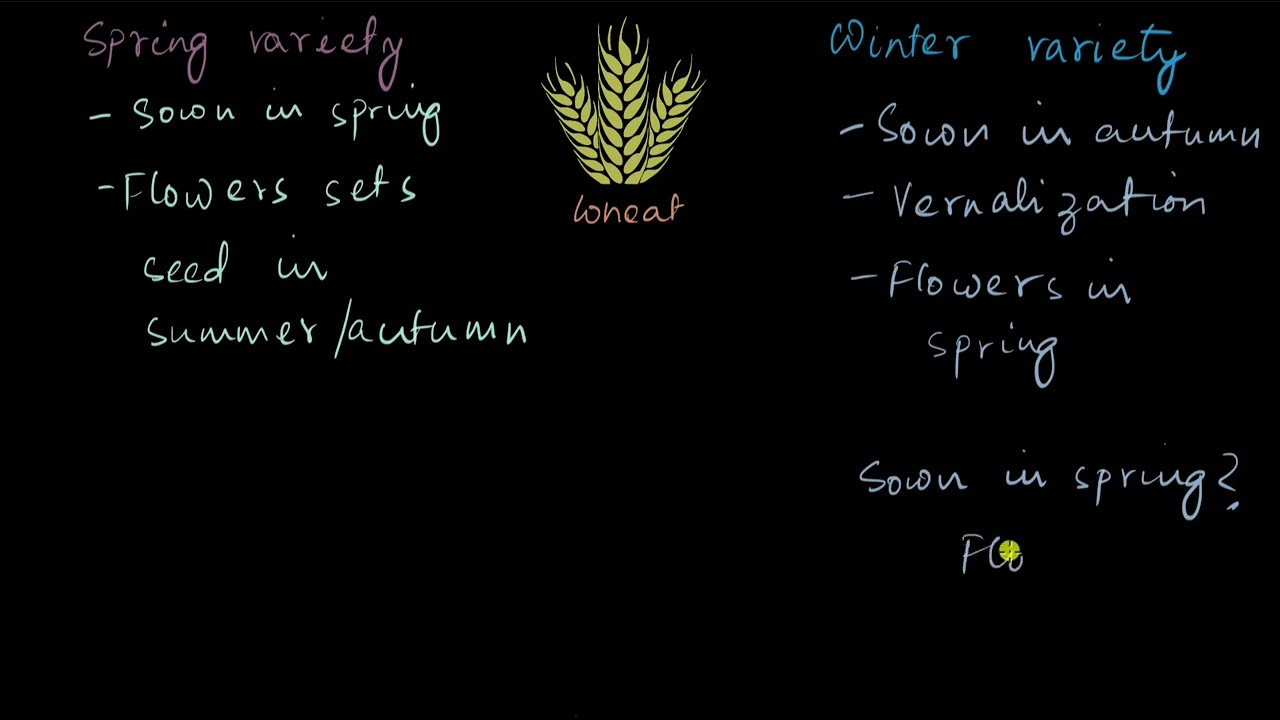 Spring varieety
- Sown in spring
- Flowers sets
seed in
summer/autumn
Wheat
Winter variety
- Sown in autumn
- Vernalization
- Flowers in
spring
Sown in spring?
Flo